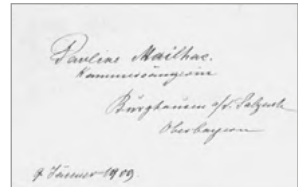 Pauline Mailhac.
Kammersängerin
Burghausen a/d. Salzach
Oberbayern
9 Jänner 1909.